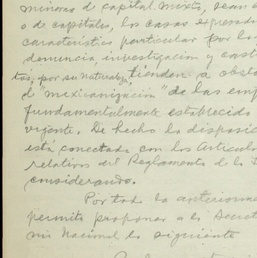 mineras de capital mixto, sean o
o de capitales, los casos
característica particular por los
denuncia, investigación y cast
tos, por su naturaleza, tiendan a obsta
el "mexicanización" de las emp
fundamentalmente establecido
vigente. De hecho la disposici
está conectada con los Artículos
relativos del Reglamento de la L
considerando.
Por todo lo anteriormen
permito proponer a la Secret
nio Nacional lo siguiente